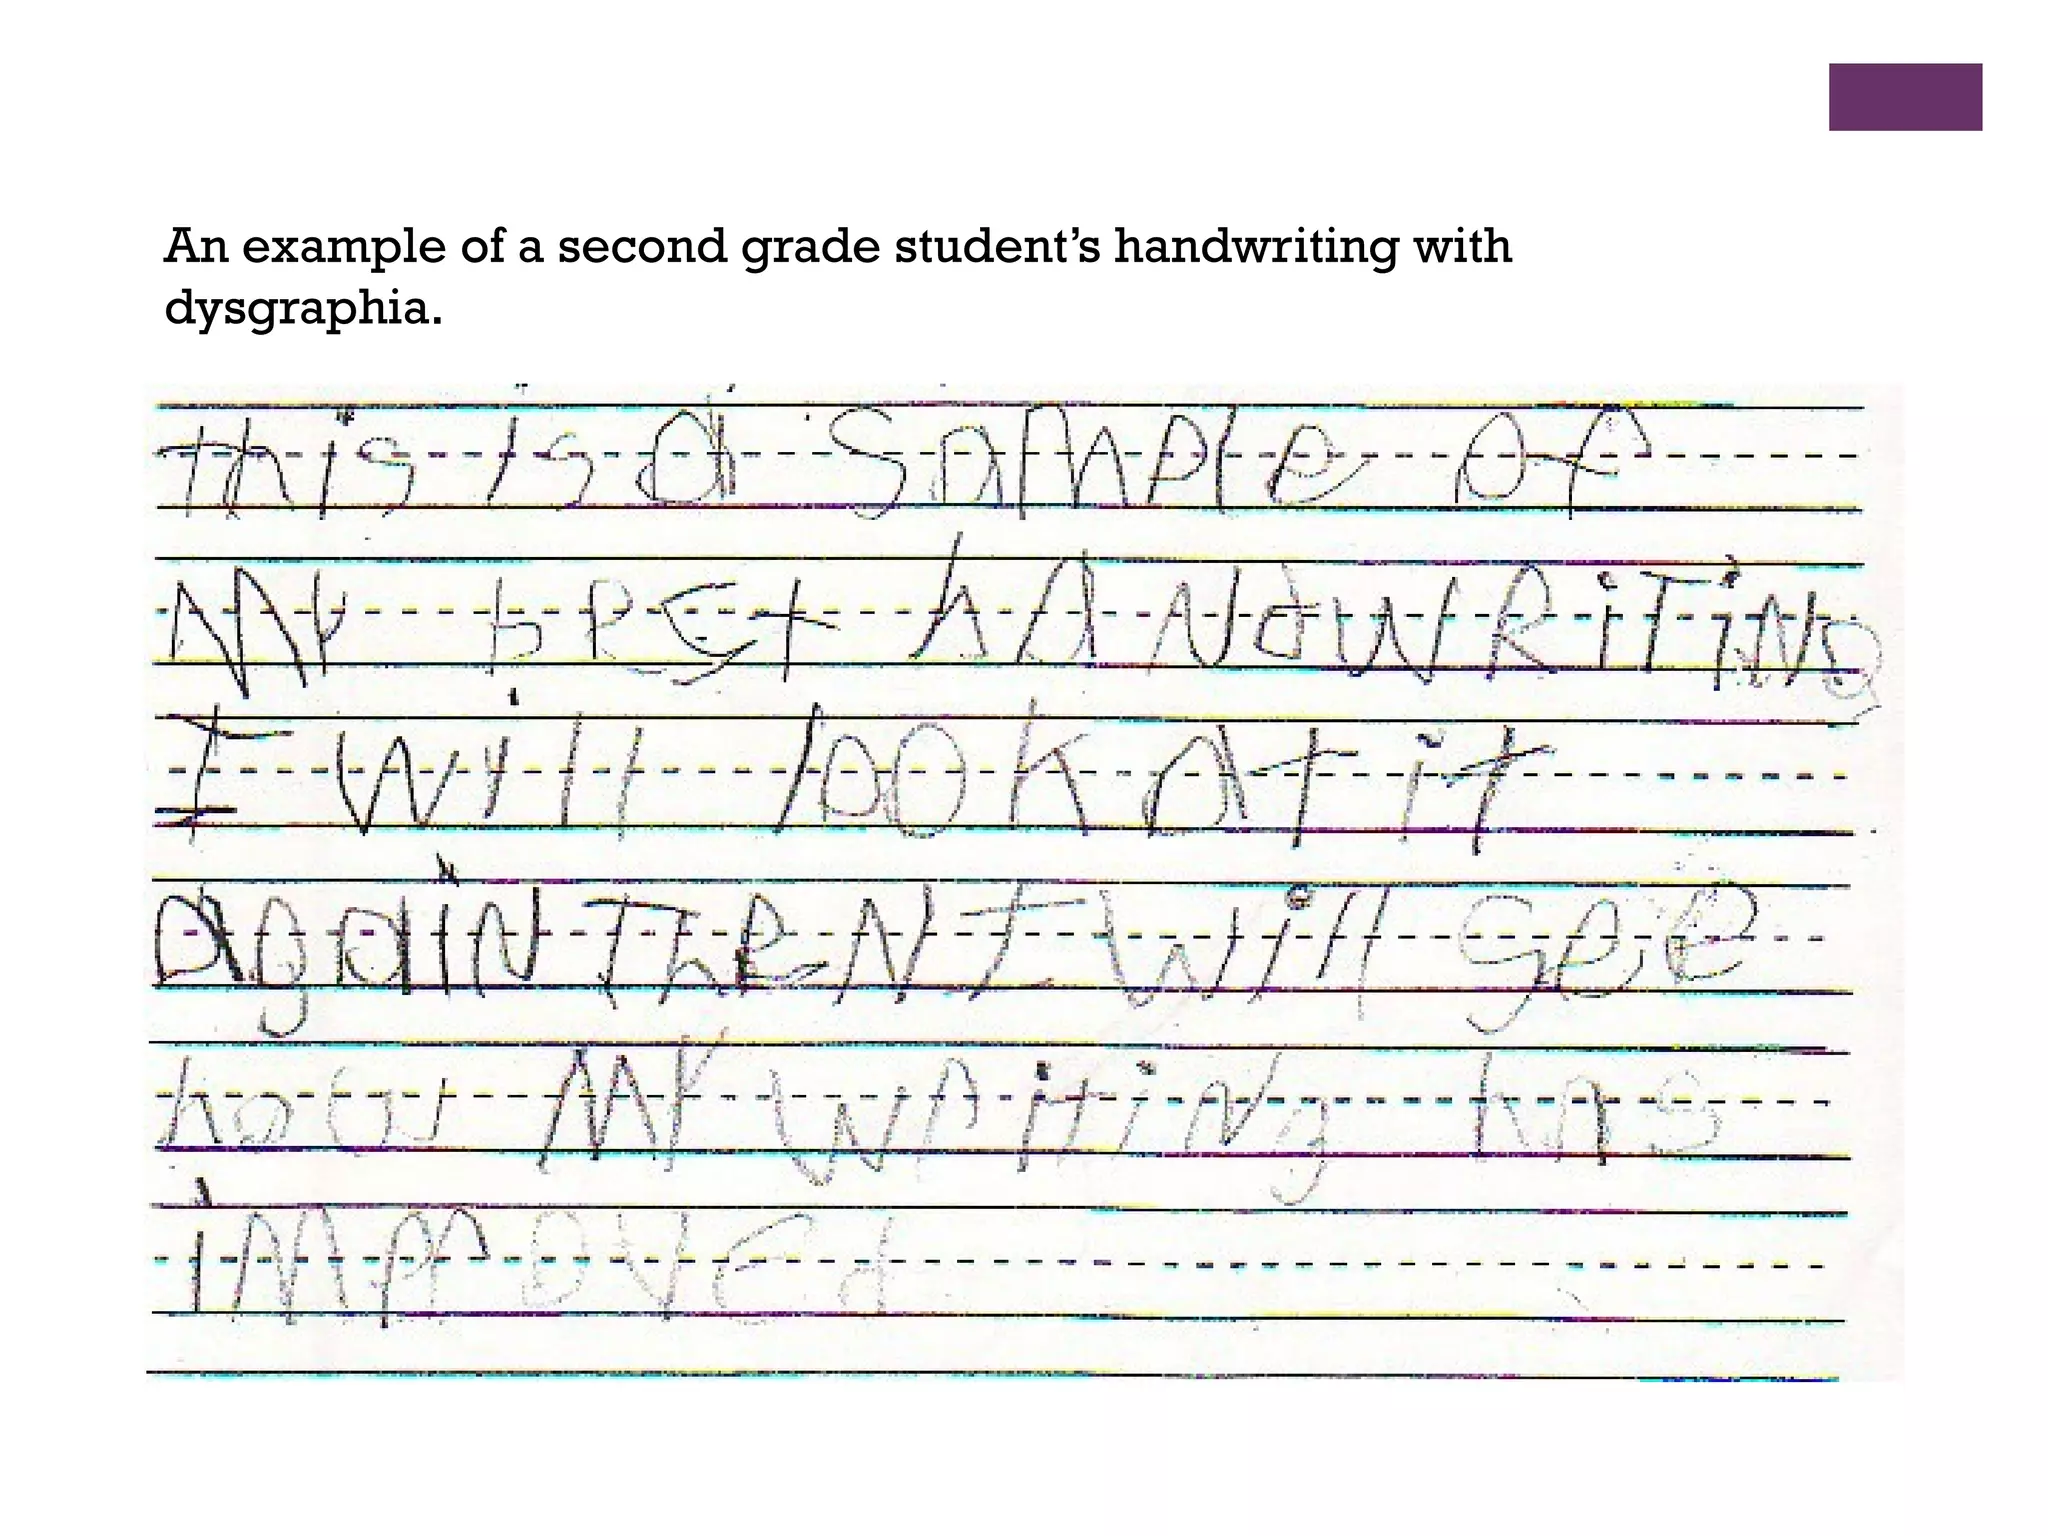 An example of a second grade student's handwriting with
dysgraphia.
this is a sample of
MY best hANdWRiTiNg
I will look at it
agaiN TheN I will see
how MY writiNg has
iMproved